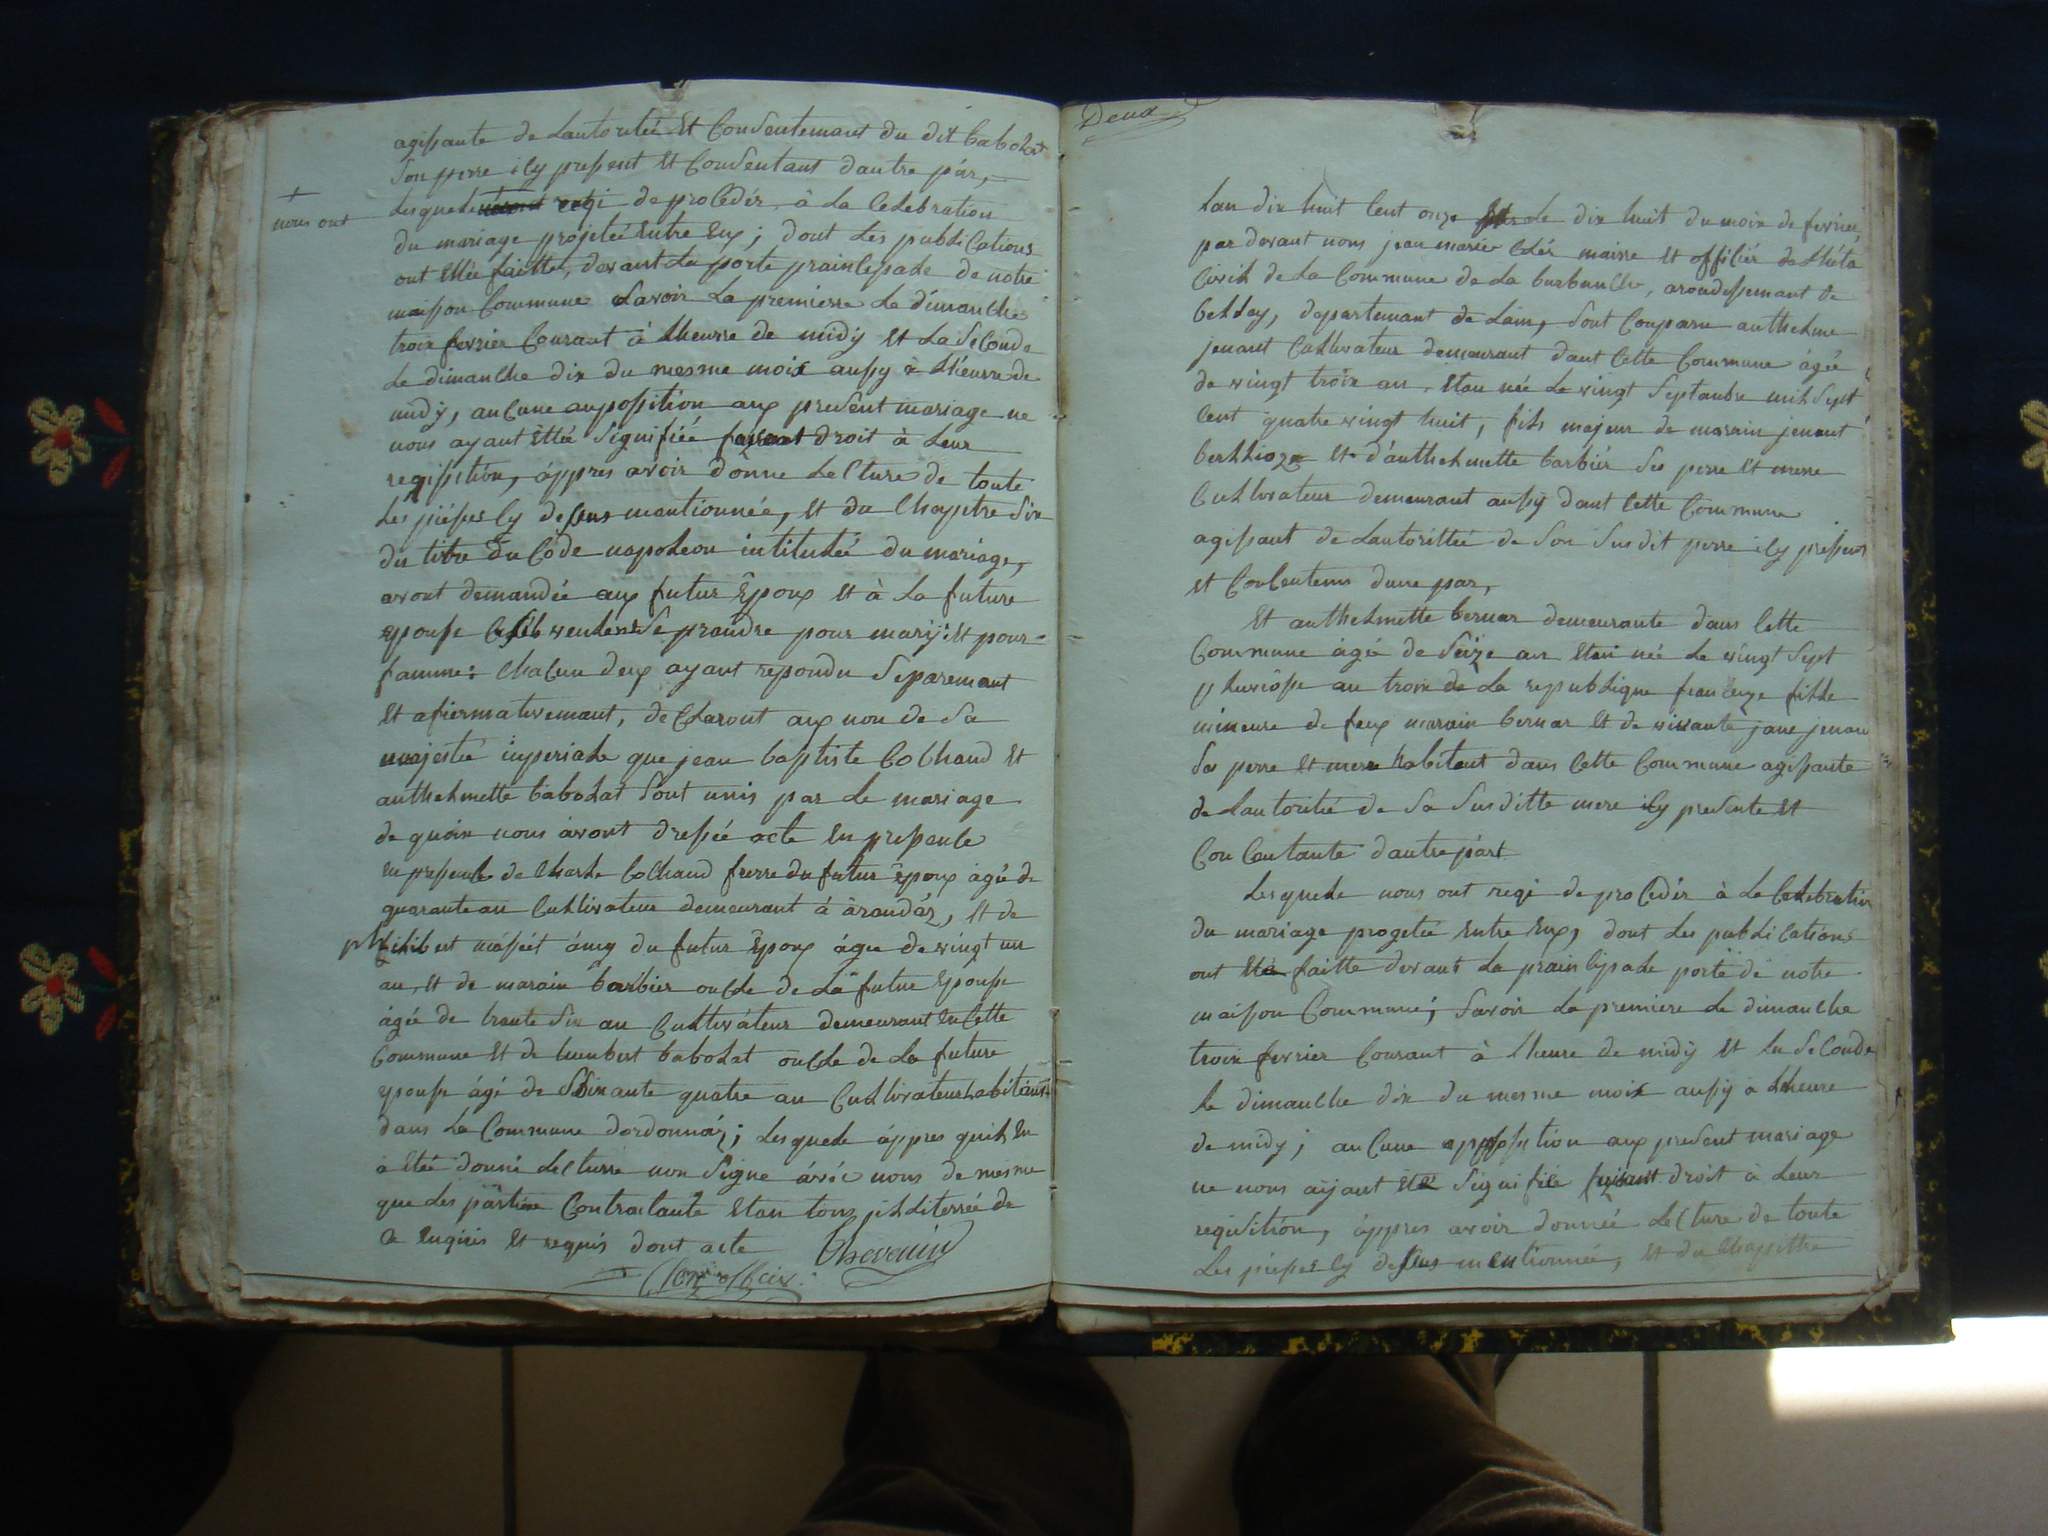 agissante de Lautoritéé Et Consentemant du dit babolat
son perre icy present Et Consentant dautre pár,
+
nous ont
Lesquele regi de proCedér à La Celebration
du mariage projetéé Entre Eux; dont Les publications
ont Ettée faitte, devant La porte prainCipale de notre
maison Commune Savoir La premierre Le dimanche
troix fevrier Courant à Lheurre de midÿ Et La seConde
Le dimanche dix du mesme moix aussy à Lheurre de
midÿ, auCune aupossition aux present mariage ne
nous ayant Ettéé signifiéé faisant droit à Leur
regissition, áppres avoir donne LeCture de toute
Les piesses Cy dessus mantionnéé, Et du Chapitre Six
du titre du Code napoleon intituléé du mariage,
avont demandée aux futur Epoux Et à La future
Epouse se prandre pour mary Et pour
famme: ChaCun deux ayant repondu Separemant
Et afiermativemant, deClaront aux non de Sa
majestée imperiale que jean baptiste CoChaud Et
anthelmette babolat Sont unis par Le mariage
de quoix nous avont dresséé acte En presence
En presence de Charle CoChaud frerre du futur Epoux ágé de
quarante an Cultivateur demeurant á àrandáz, Et de
philibert másséét ámy du futur Epoux ágée de vingt un
an, Et de marain barbier onCle de La future Epouse
ágéé de trante Six an Cultivateur demeurant En Cette
Commune Et de humbert babolat onCle de La future
Epouse ágé de Soixante quatre an Cultivateur habitant
dans La Commune dordonnáz; Lesquele áppres quil En
a Etéé donné LeCturre non Signe ávéc nous de mesme
que Les partiee Contractante Etan tous jilliterréé de
Ce Enquis Et requis dont acte Thevenin
Cler officier
Deux
Lan dix huit Cent onze Le dix huit du moix de fevrier,
par devant nous jean marie Clér mairre Et officiér de Lhéta
Civil de La Commune de La burbanche, arondissemant de
belley, departemant de Lain, Sont Comparu anthelme
jenant Cultivateur demeurant dant Cette Commune ágéé
de vingt troix an Etan née Le vingt Septanbre mil Sept
Cent quatre vingt huit, fils majeur de marain jenant
berllioz Et d'anthelmette barbiér Ses perre Et merre
Cultivateur demeurant aussÿ dant Cette Commune
agissant de Lautorittéé de Son Susdit perre icy present
Et Consentens dune par,
Et anthelmette bernar demeurante dans Cette
Commune ágéé de Seize an Etan née Le vingt Sept
pluviôsse an troix de La republique franceze fille
mineure de feux marain bernar Et de vivante jane jenan
Sa perre Et merre habitent dans Cette Commune agissante
de Lautoritéé de Sa Susditte mere icy presente Et
ConCentante dautre part
Lesquele nous ont regi de proCedér à La Celebration
du mariage progetéé Entre Eux, dont Les publiCations
ont Eté faitte devant La prainCipale porte de notre
maison Commune; Savoir La premiere Le dimanche
troix fevrier Courant à Lheure de midÿ Et La SeConde
Le dimanche dix du mesme moix aussÿ à Lheure
de midy; auCune oppossition aux present mariage
ne nous aÿant Eté Signifiéé faisant droit à Leur
regisitión, áppres avoir donnéé LeCture de toute
Les piesses Cy dessus mentionnéé, Et du Chapittre